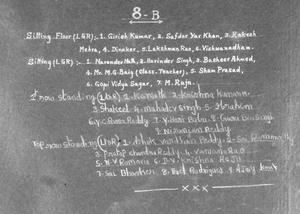 8-B
Sitting Floor (L&R) :- 1. Girish Kumar, 2. Safdar Yar Khan, 3. Rakesh
Mehra, 4. Dinaker, 5. Lakshman Rao, 6. Vishwanadham.
Sitting (L&R) :- 1. Narender Nath, 2. Harinder Singh, 3. Basheer Ahmed,
4. Mr. M.G. Baig (Class-Teacher), 5. Sham Prasad,
6. Gopi Vidya Sagar, 7. M. Raja.
I row standing (L&R) 1. Kamath 2. Krishna Kumar.
3. Shakeel 4. Mahadev Singh 5. Ibrahim
6. Y.C. Rama Reddy 7. Y. Hari Babu 8. Singh
9. Niranjan Reddy
Top row standing (L&R) 1. Ashok Vardhan Reddy. 2. Sai
3. Pratap Chandra Reddy 4. Rao
5. N.V. Ramana 6. D.V. Krishna Raju
7. Sai Bhaskar 8. Rodrigues 9. Ajay
xxx